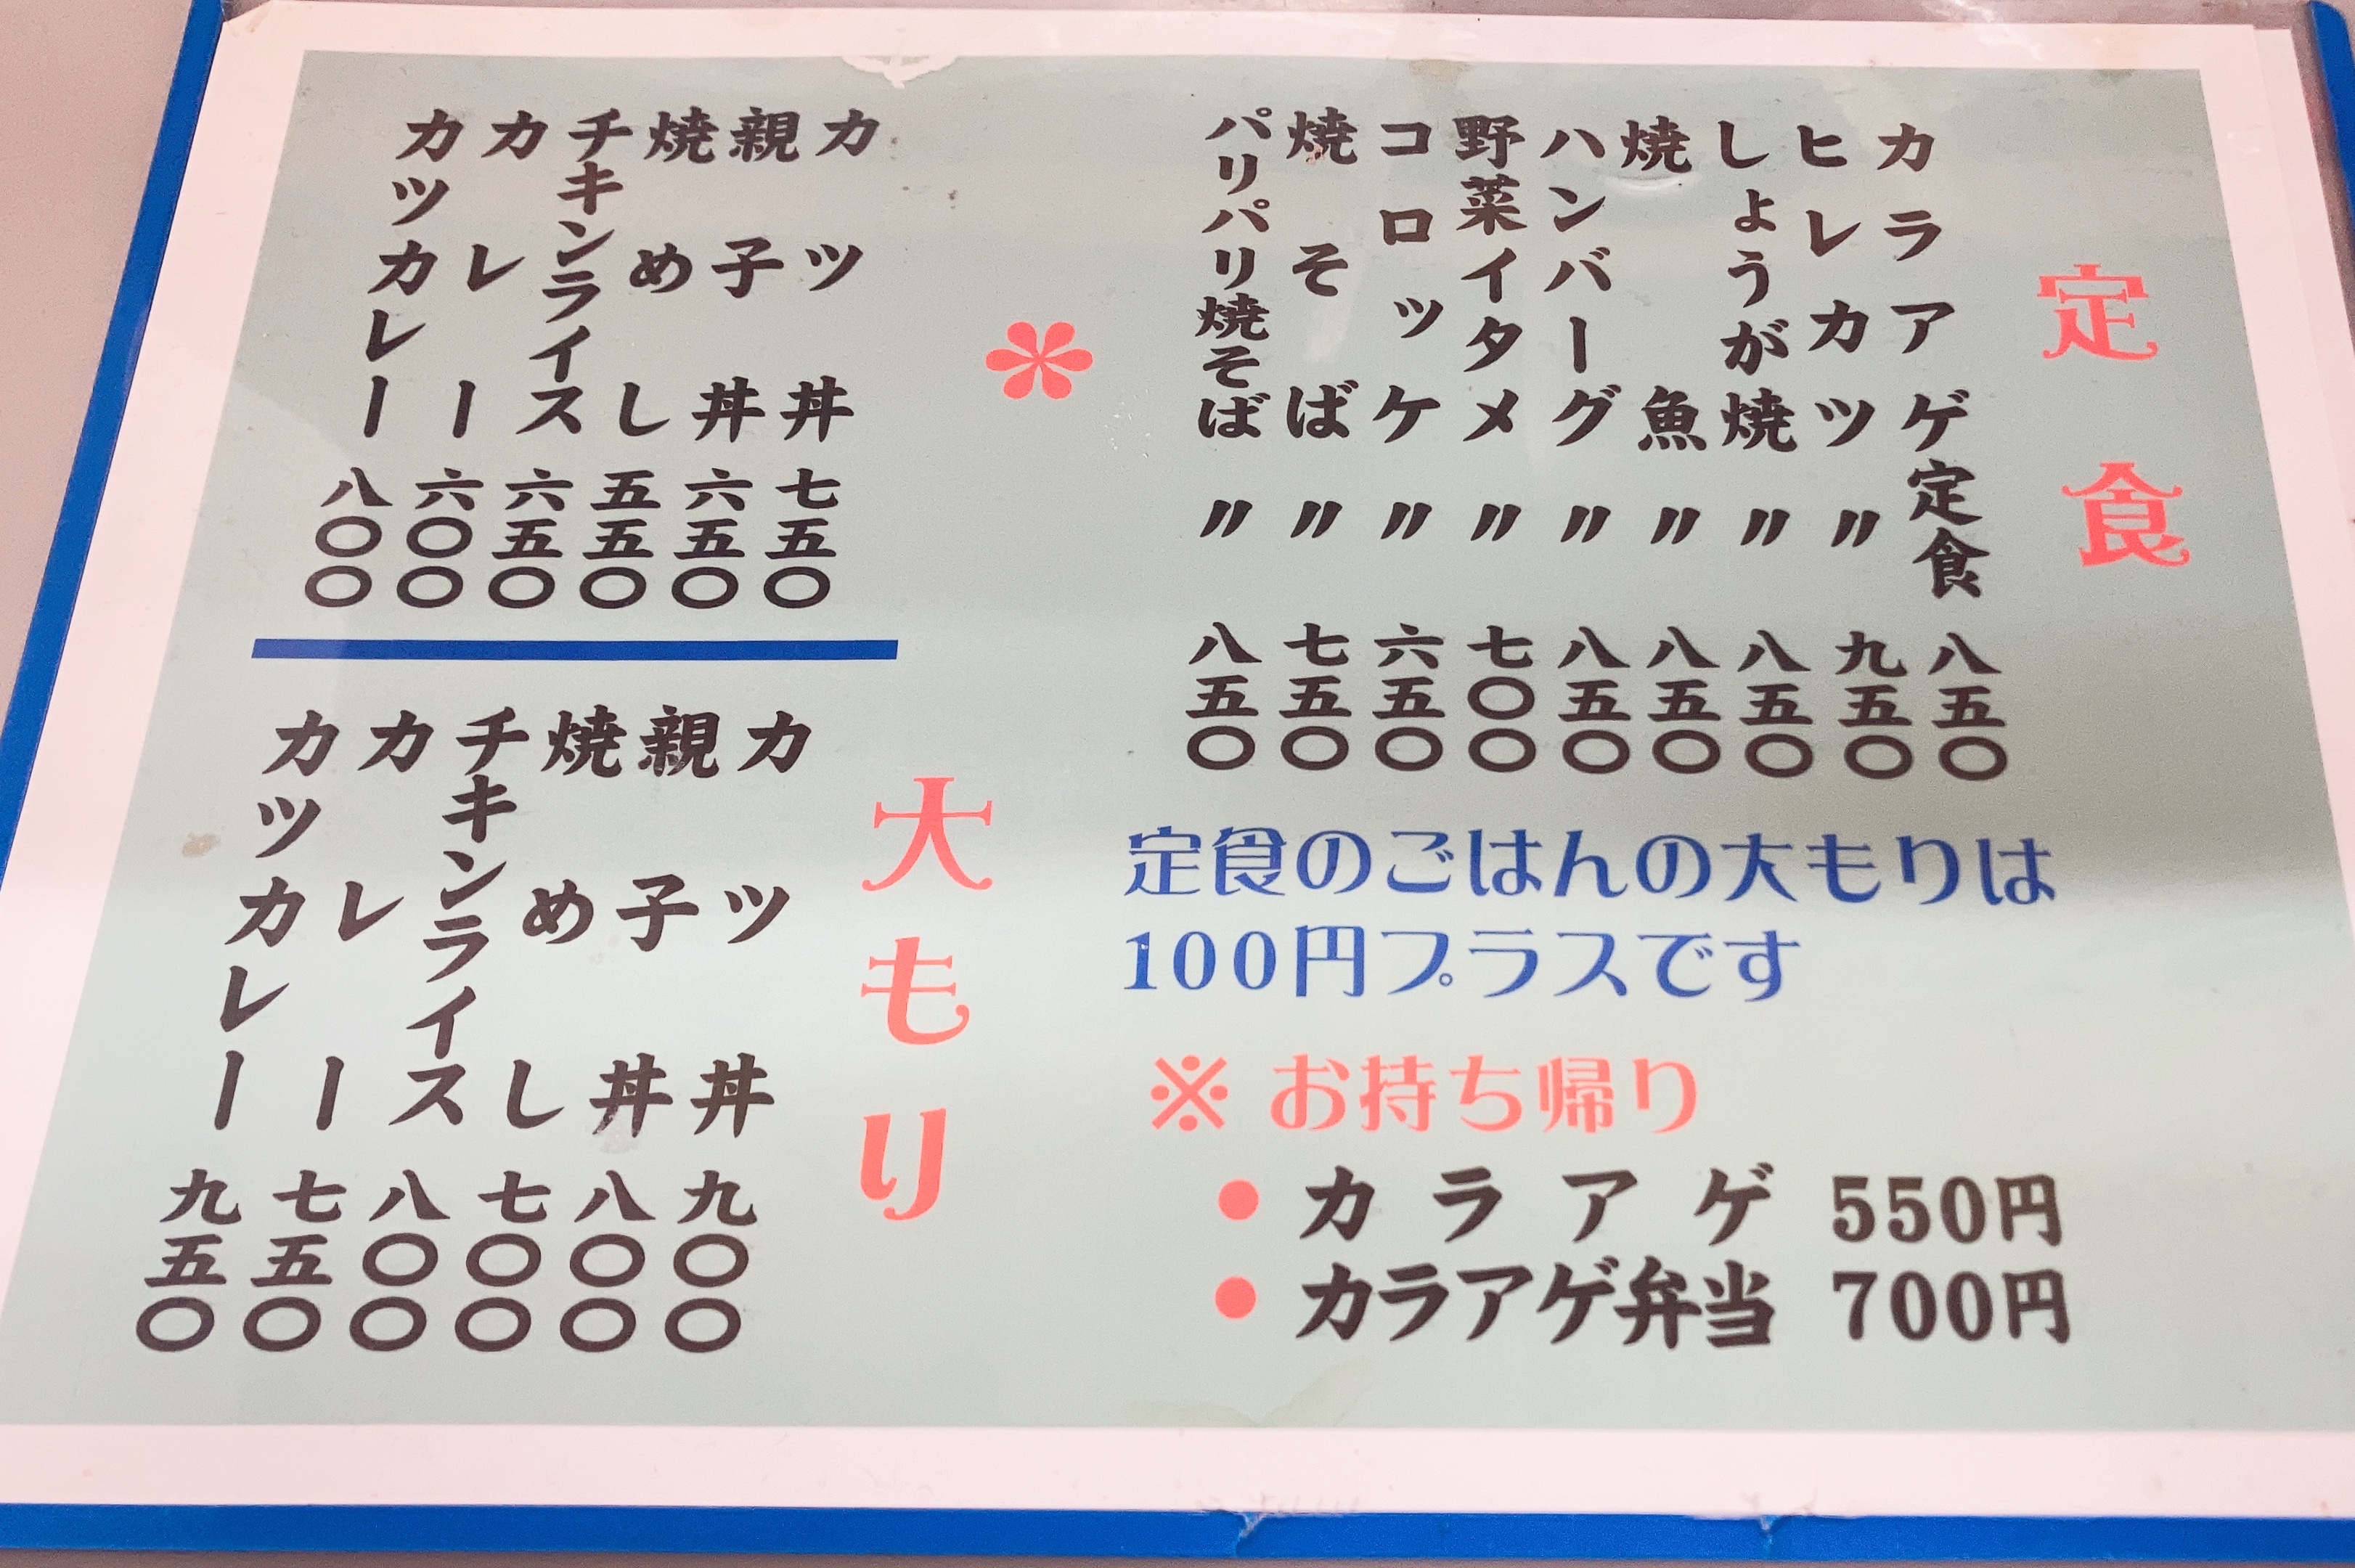 定食
カラアゲ定食 八五〇
ヒレカツ 〃 九五〇
しょうが焼 〃 八五〇
焼魚 〃 八五〇
ハンバーグ 〃 八五〇
野菜イタメ 〃 七〇〇
コロッケ 〃 六五〇
焼そば 〃 七五〇
パリパリ焼そば 〃 八五〇
定食のごはんの大もりは
100円プラスです
※ お持ち帰り
● カラアゲ 550円
● カラアゲ弁当 700円
＊
カツ丼 七五〇
親子丼 六五〇
焼めし 五五〇
チキンライス 六五〇
カレー 六〇〇
カツカレー 八〇〇
大もり
カツ丼 九〇〇
親子丼 八〇〇
焼めし 七〇〇
チキンライス 八〇〇
カレー 七五〇
カツカレー 九五〇